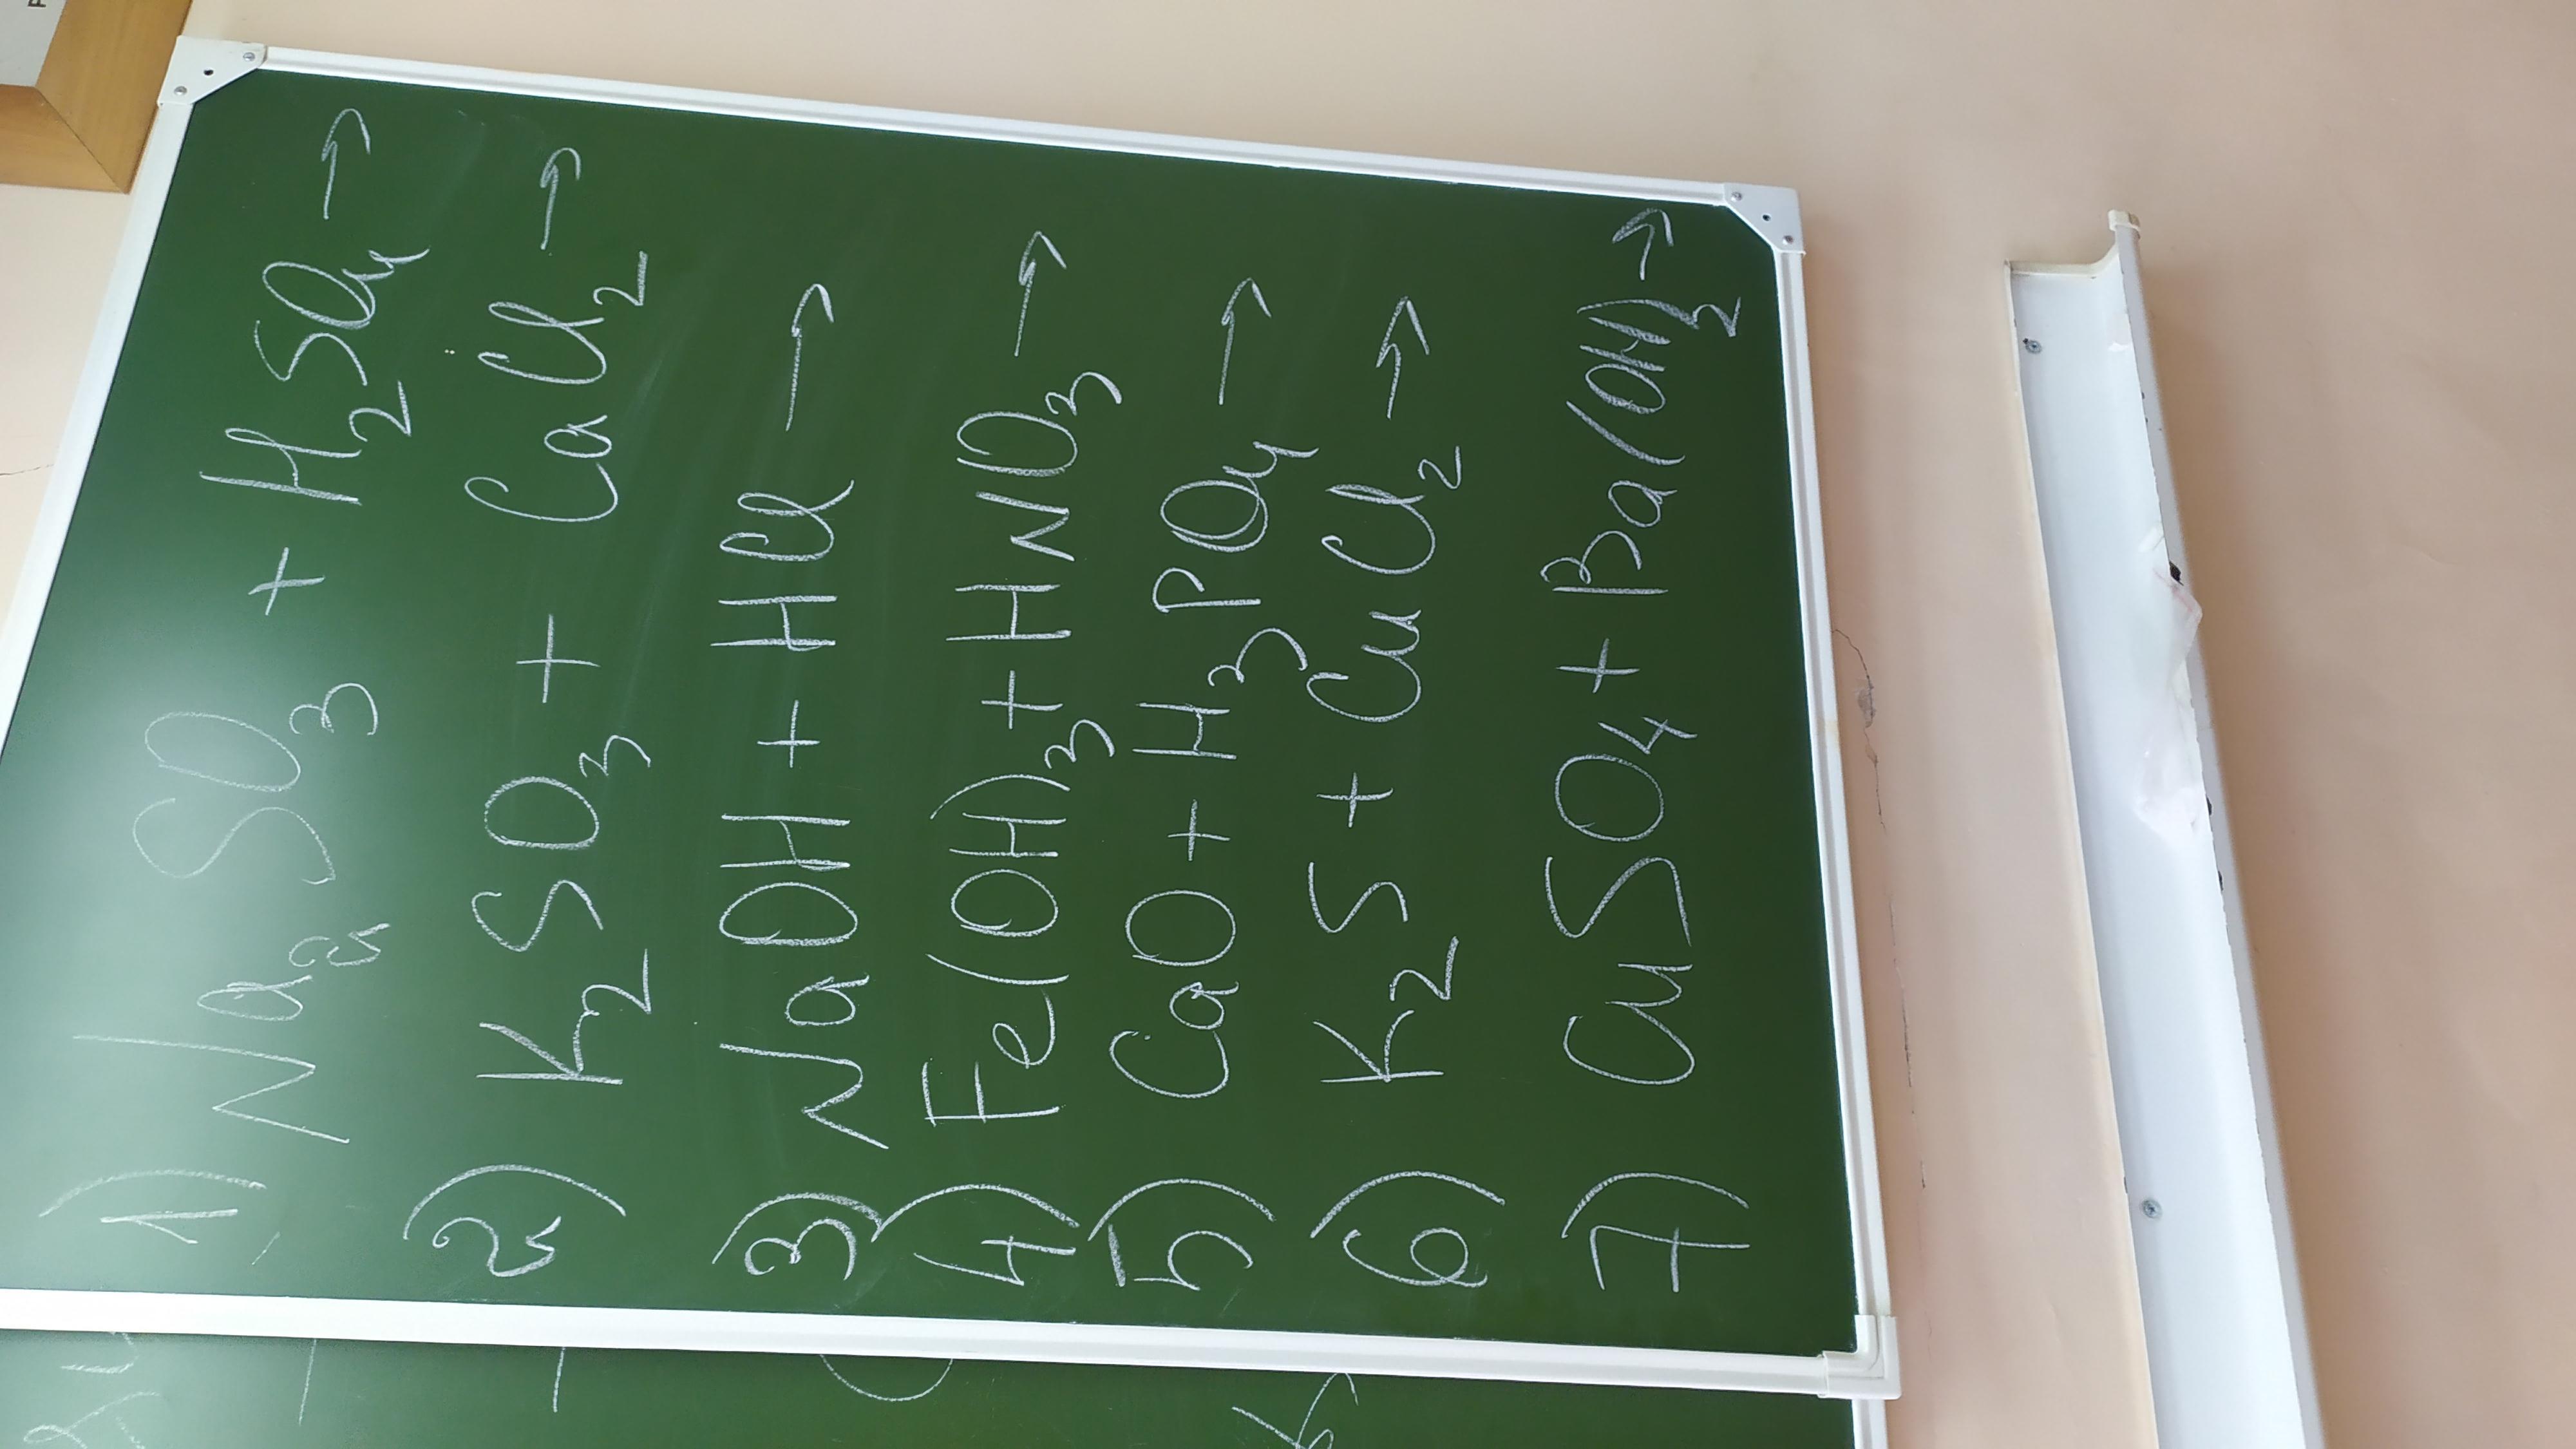 1) Na₂SO₃ + H₂SO₄ →
2) K₂SO₃ + CaCl₂ →
3) NaOH + HCl →
4) Fe(OH)₃ + HNO₃ →
5) CaO + H₃PO₄ →
6) K₂S + CuCl₂ →
7) CuSO4 + Ba(OH)₂ →